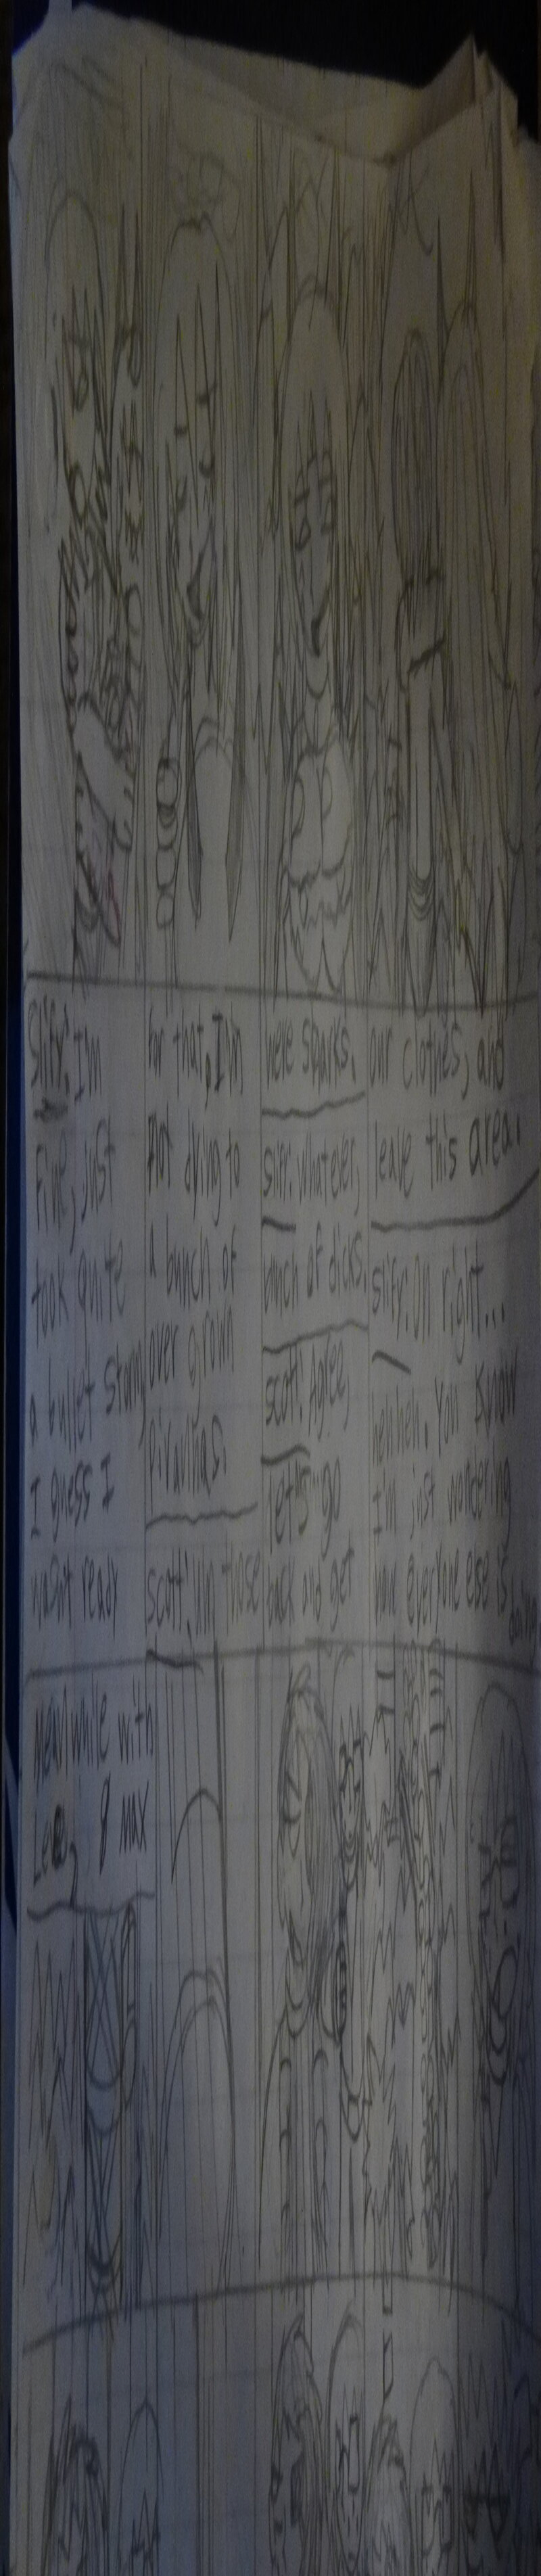 Sify: I'm
Fine, just
took quite
a bullet
I guess I
wasnt ready
for that, I'm
not dying to
a bunch of
over grown
Piranhas.
scott:
here sparks.
sify: whatever,
bunch of dicks.
scott: Agree
let's go
back and get
our clothes, and
leave this area.
sify: Oh right...
hehheh. You know
I'm just wondering
how everyone else is
doing
Meanwhile with
& Max